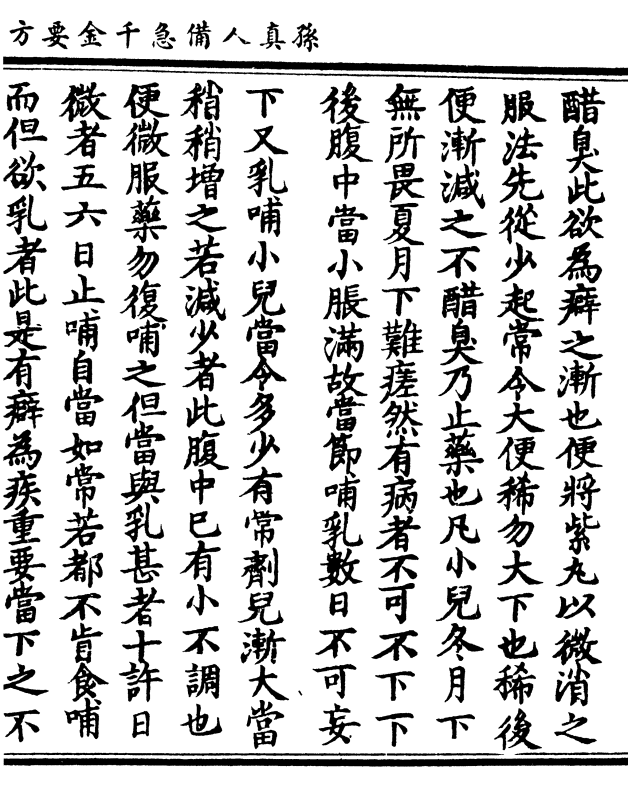 孫真人備急千金要方
醋臭此欲為癖之漸也便將紫丸以微消之
服法先從少起常令大便稀勿大下也稀後
便漸減之不醋臭乃止藥也凡小兒冬月下
無所畏夏月下難瘥然有病者不可不下下
後腹中當小脹滿故當節哺乳數日不可妄
下又乳哺小兒當令多少有常劑兒漸大當
稍稍增之若減少者此腹中已有小不調也
便微服藥勿復哺之但當與乳甚者十許日
微者五六日止哺自當如常若都不肯食哺
而但欲乳者此是有癖為疾重要當下之不